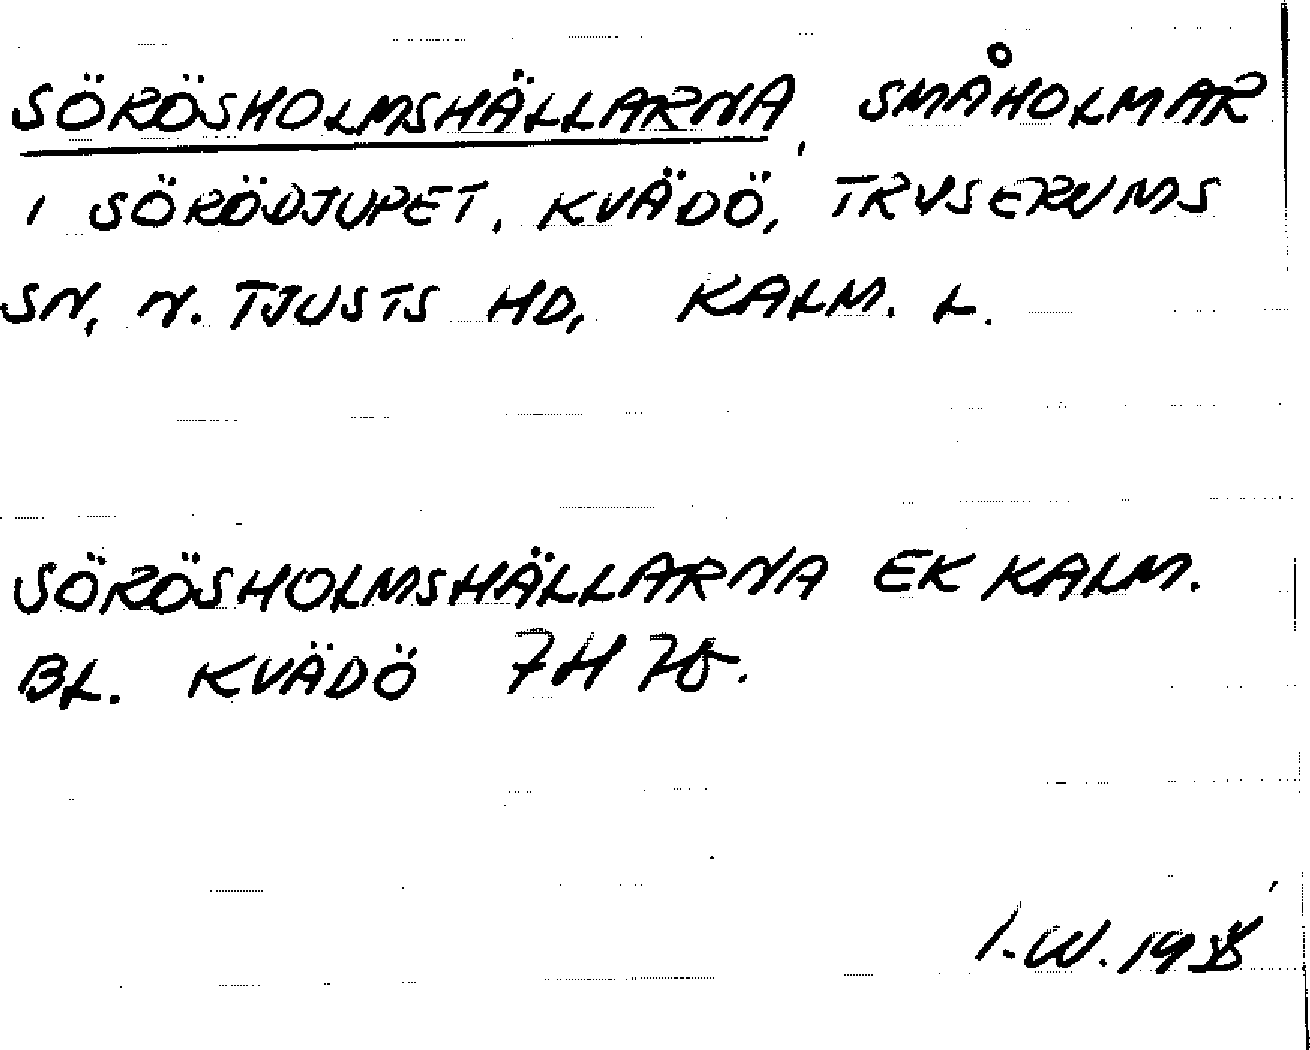 SÖRÖSHOLMSHÄLLARNA, SMÅHOLMAR
I SÖRÖDJUPET, KVÄDÖ, TRYSERUMS
SN, N. TJUSTS HD, KALM. L.
SÖRÖSHOLMSHÄLLARNA EK KALM.
BL. KVÄDÖ 7H
I.W.